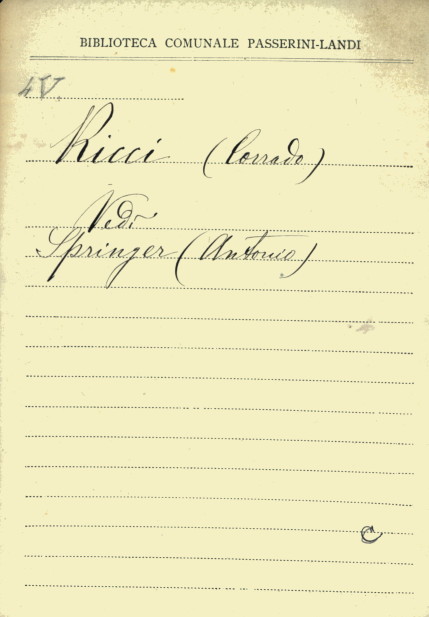 BIBLIOTECA COMUNALE PASSERINI-LANDI
4V.
Ricci (Corrado)
Vedi
Springer (Antonio)
C